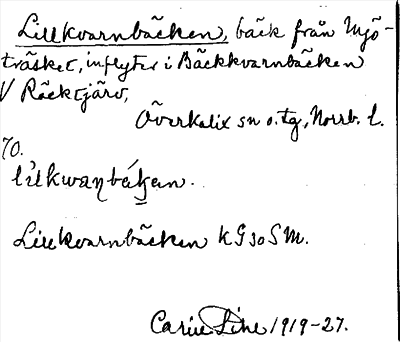 Lillkvarnbäcken, bäck från Myö-
träsket, inflyter i Bäckkvarnbäcken
V Räcktjärv,
Överkalix sn o. tg, Norrb. l.
70.
Lillkvarnbäcken KG 30 SM.
Carin Pihl 1919-27.